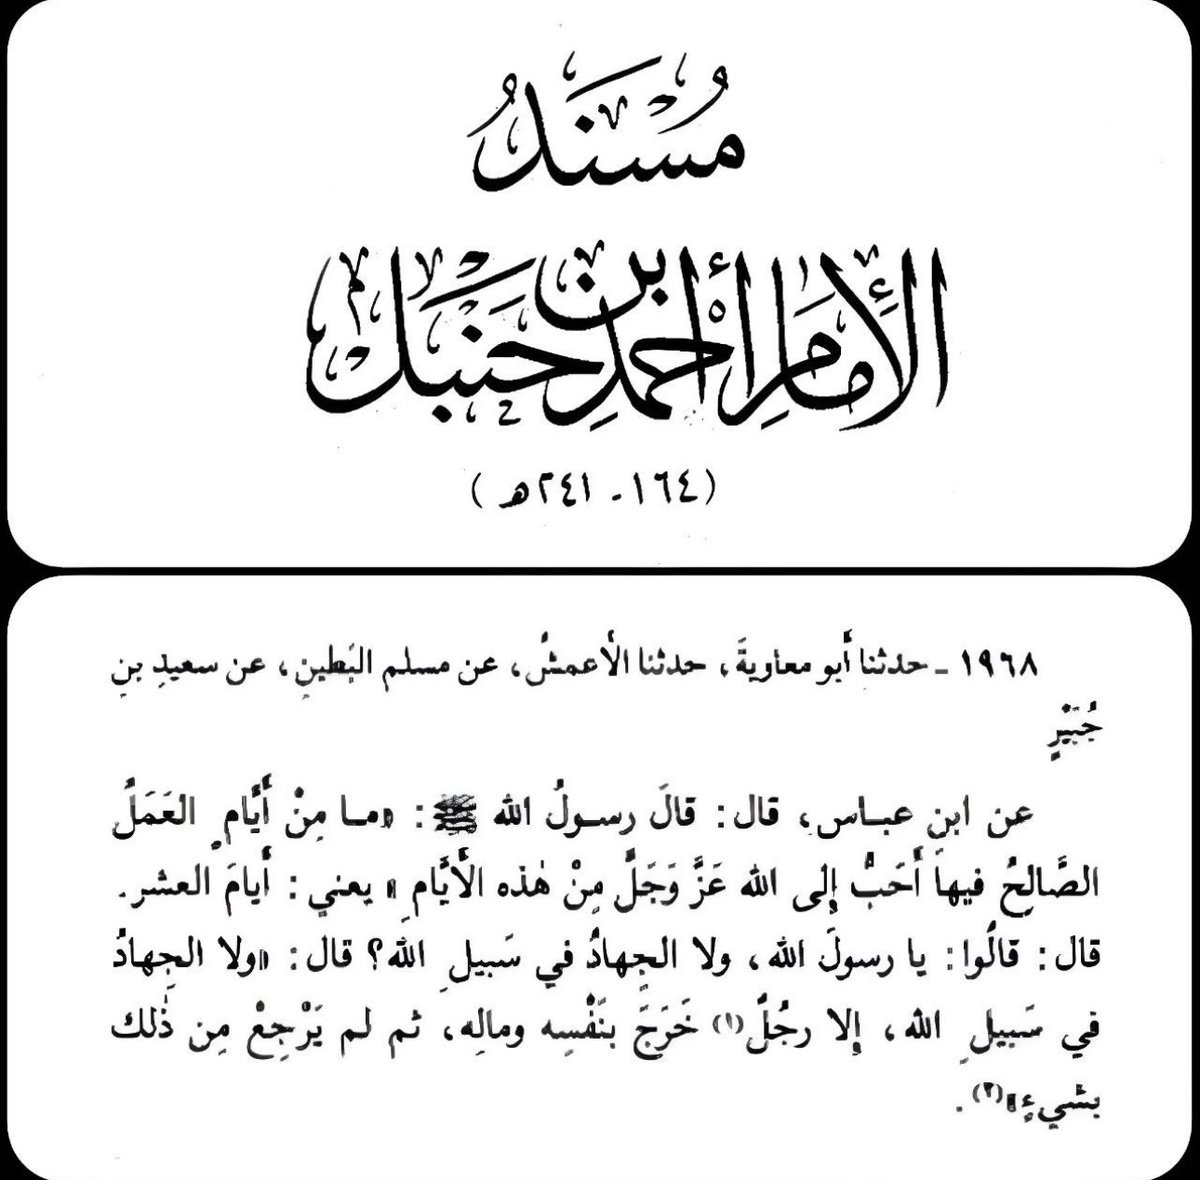 مُسْنَدُ
الإِمَامِ أَحْمَدَ بْنِ حَنْبَلٍ
(١٦٤ - ٢٤١هـ)
١٩٦٨ - حدثنا أَبو معاويةَ، حدثنا الأَعمشُ، عن مسلم البَطينِ، عن سعيدِ بنِ
جُبَيْرٍ
عن ابنِ عبـاس، قال: قالَ رسـولُ الله ﷺ: «مـا مِنْ أَيَّامٍ العَمَلُ
الصَّالِحُ فيها أَحَبُّ إِلى الله عَزَّ وَجَلَّ مِنْ هٰذه الأَيَّامِ» يعني: أَيامَ العشر.
قال: قالُوا: يا رسولَ الله، ولا الجِهادُ في سَبيلِ الله؟ قال: «ولا الجِهادُ
في سَبيلِ الله، إِلا رجُلٌ(١) خَرَجَ بنَفْسِه ومالِه، ثم لم يَرْجِعْ مِن ذٰلك
بشيءٍ»(٢).